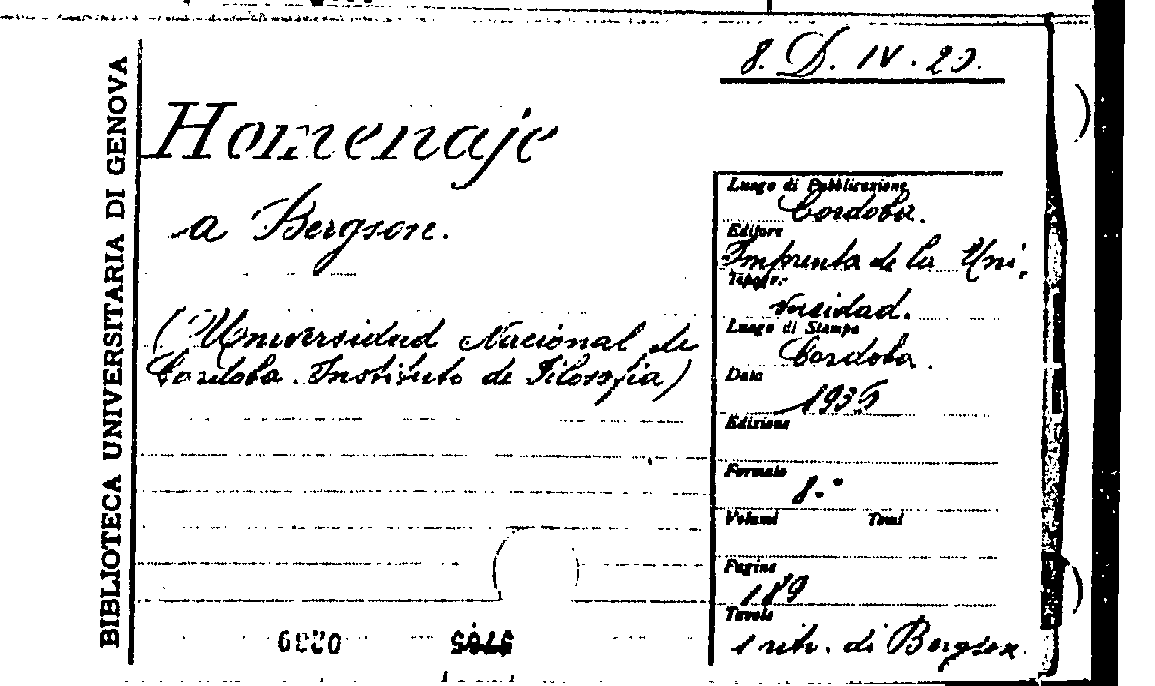 BIBLIOTECA UNIVERSITARIA DI GENOVA
8. D. IV. 20.
Homenaje
a Bergson.
(Universidad Nacional de
Cordoba. Instituto de Filosofia)
Luogo di Pubblicazione
Cordoba.
Editore
Imprenta de la Uni,
Tipogr.
versidad.
Luogo di Stampa
Cordoba.
Data
1936
Edizione
Formato
8.°
Volumi Tomi
Pagine
189
Tavole
1 ritr. di Bergson.
0239